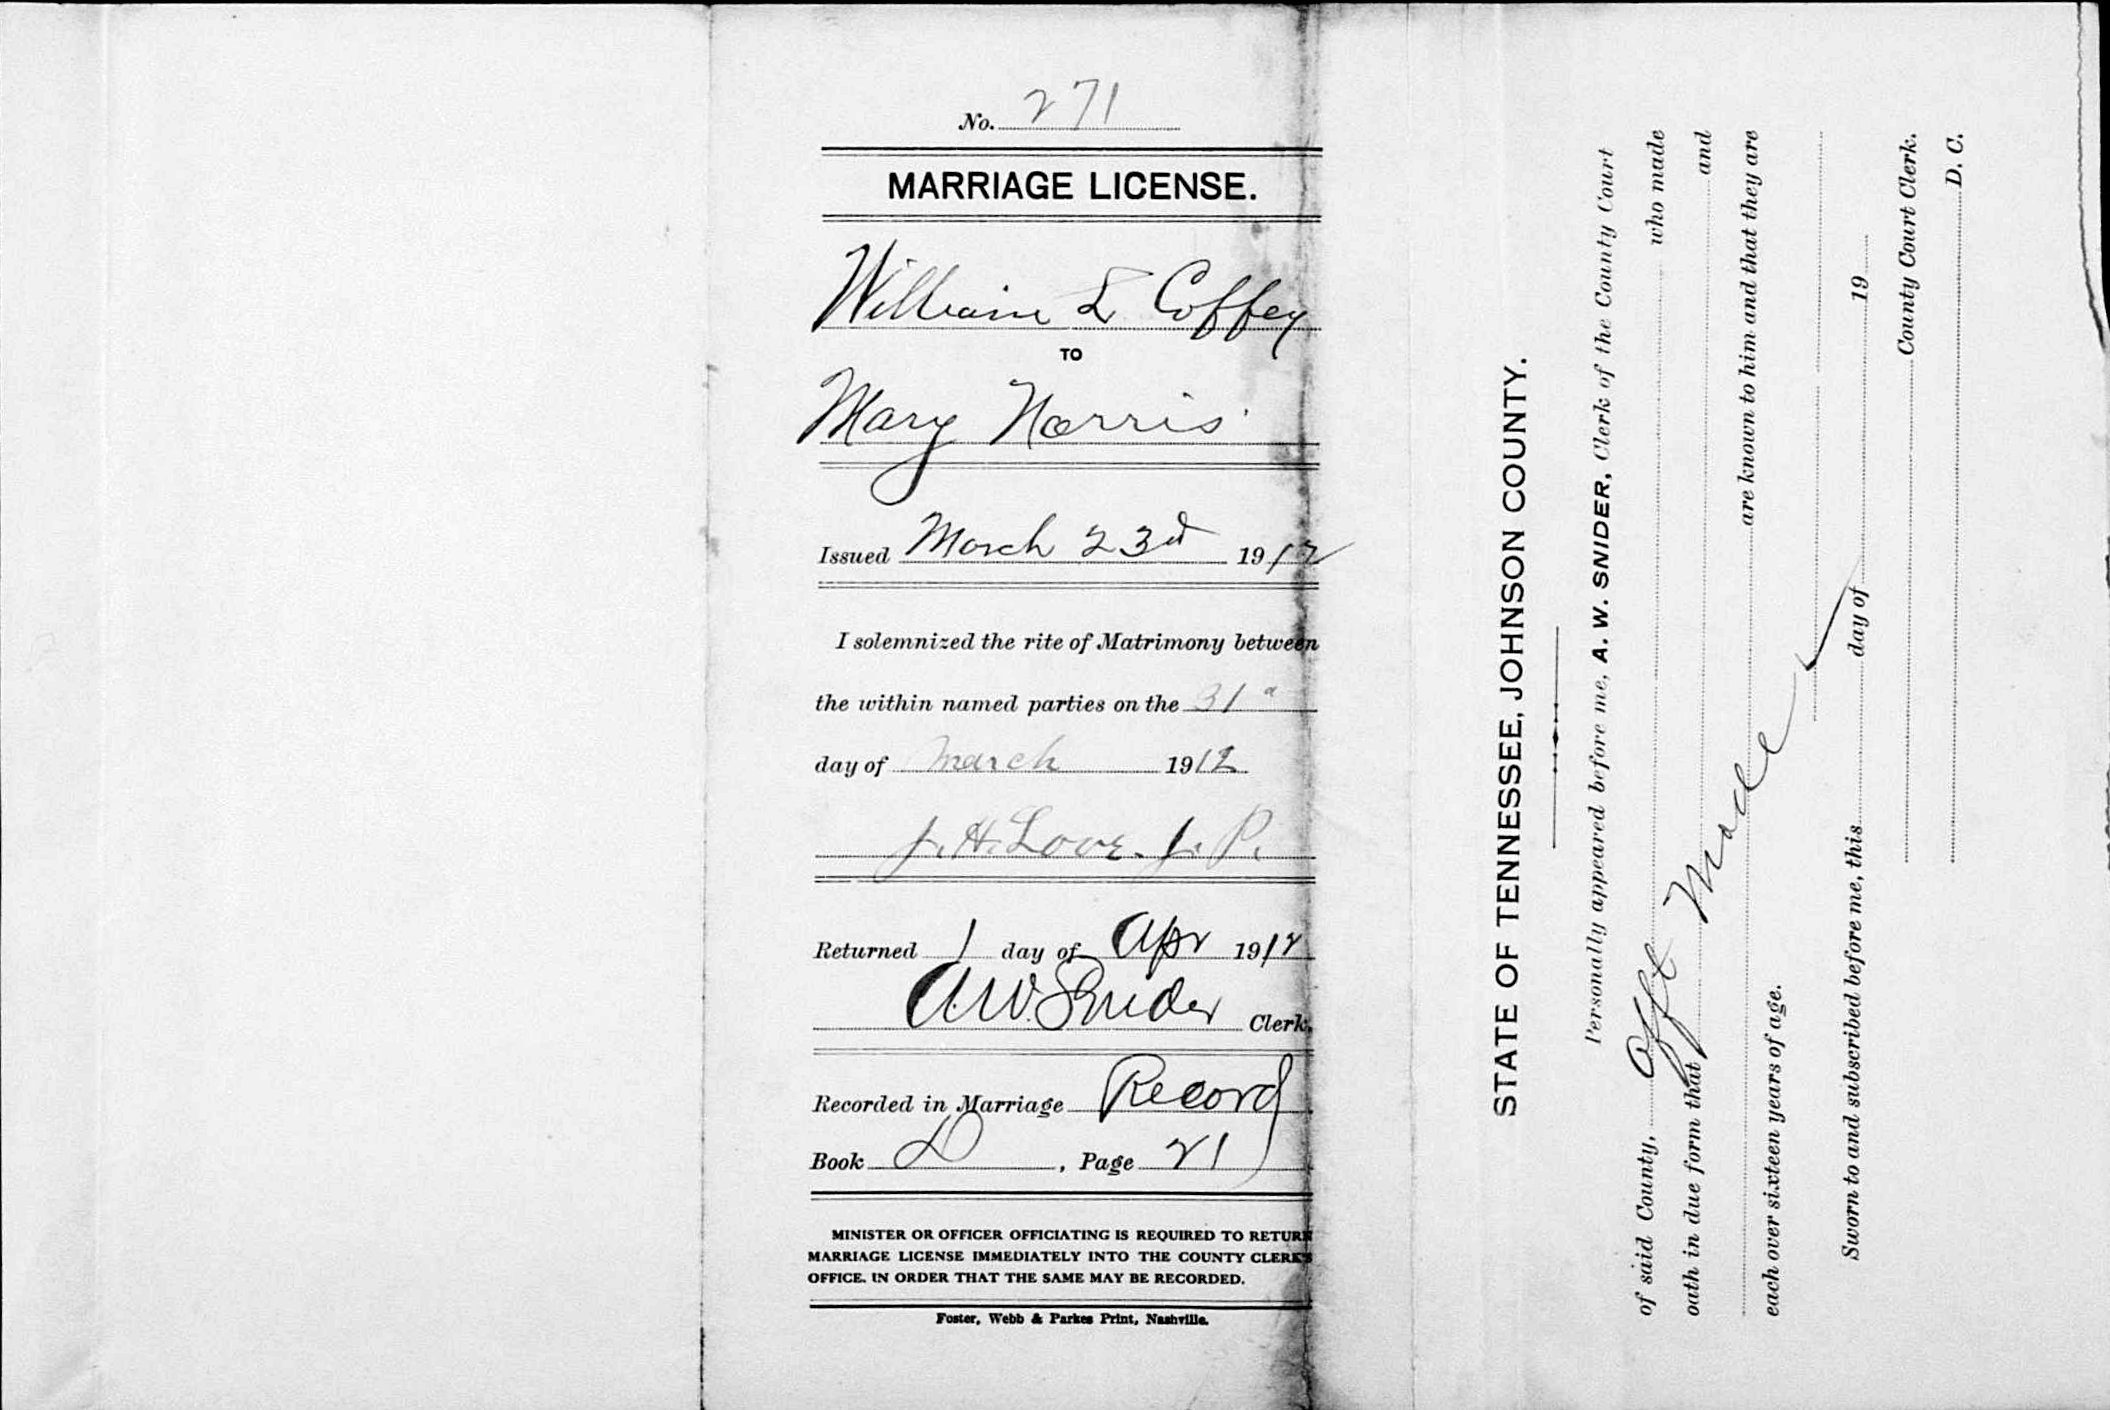 No. 271
MARRIAGE LICENSE.
William L Coffey
TO
Mary Norris
Issued March 23rd 1912
I solemnized the rite of Matrimony between
the within named parties on the 31
day of March 1912
J. H. Love. J. P.
Returned 1 day of Apr 1912
A. W. Snider Clerk.
Recorded in Marriage Record
Book D, Page 21
MINISTER OR OFFICER OFFICIATING IS REQUIRED TO RETURN
MARRIAGE LICENSE IMMEDIATELY INTO THE COUNTY CLERK'S
OFFICE. IN ORDER THAT THE SAME MAY BE RECORDED.
Foster, Webb & Parkes Print, Nashville.
STATE OF TENNESSEE, JOHNSON COUNTY.
Personally appeared before me, A. W. SNIDER, Clerk of the County Court
of said County, who made
oath in due form that and
are known to him and that they are
each over sixteen years of age.
Afft Made
Sworn to and subscribed before me, this day of 19
County Court Clerk.
D. C.